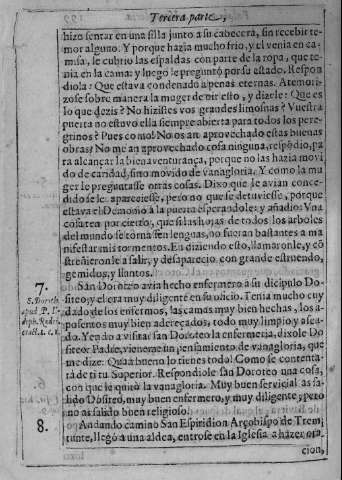 Tercera parte,
hizo sentar en una silla junto a su cabecera, sin recebir te
mor alguno. Y porque hazia mucho frio, y el venia en ca-
misa, le cubrio las espaldas con parte de la ropa, que te-
nia en la cama: y luego le preguntò por su estado. Respon
diola: Que estava condenado a penas eternas. Atemori-
zose sobre manera la muger de oir esto, y dizele: Que es
lo que dezis? No hizistes vos grandes limosnas? Vuestra
puerta no estavo ella siempre abierta para todos los pere-
grinos? Pues como! No os an aprovechado estas buenas
obras? No me an aprovechado cosa ninguna, respõdio, pa
ra alcançar la bienaventurança, porque no las hazia movi
do de caridad, sino movido de vanagloria. Y como la mu-
ger le preguntasse otras cosas. Dixo que le avian conce-
dido se le apareciesse, pero no que se detuviesse, porque
estava el Demonio a la puerta esperandole: y añadio: Vna
cosa ten por cierto, que si las hojas de todos los arboles
del mundo se tornassen lenguas, no fueran bastantes a ma
nifestar mis tormentos. En diziendo esto, llamaronle, y cõ
streñeronle a salir, y desaparecio con grande estruendo,
gemidos, y llantos.
7. San Doroteo avia hecho enfermero a su dicipulo Do-
siteo; y el era muy diligente en su oficio. Tenia mucho cuy
dado de los enfermos, las camas muy bien hechas, los a-
posentos muy bien adereçados, todo muy limpio y assea
do. Yendo a visitar san Doroteo la enfermeria, dixole Do
siteo: Padre, vieneme un pensamiento de vanagloria, que
me dize: Quan bueno lo tienes todo! Como se contenta-
rà de ti tu Superior. Respondiole san Doroteo una cosa,
con que le quitò la vanagloria. Muy buen servicial as sa-
lido Dositeo, muy buen enfermero, y muy diligente; pero
no as salido buen religioso.
8. Andando camino San Espiridion Arçobispo de Trem
itunte, llegò a una aldea, entrose en la Iglesia a hazer ora-
cion,
S. Doroth.
apud P. I-